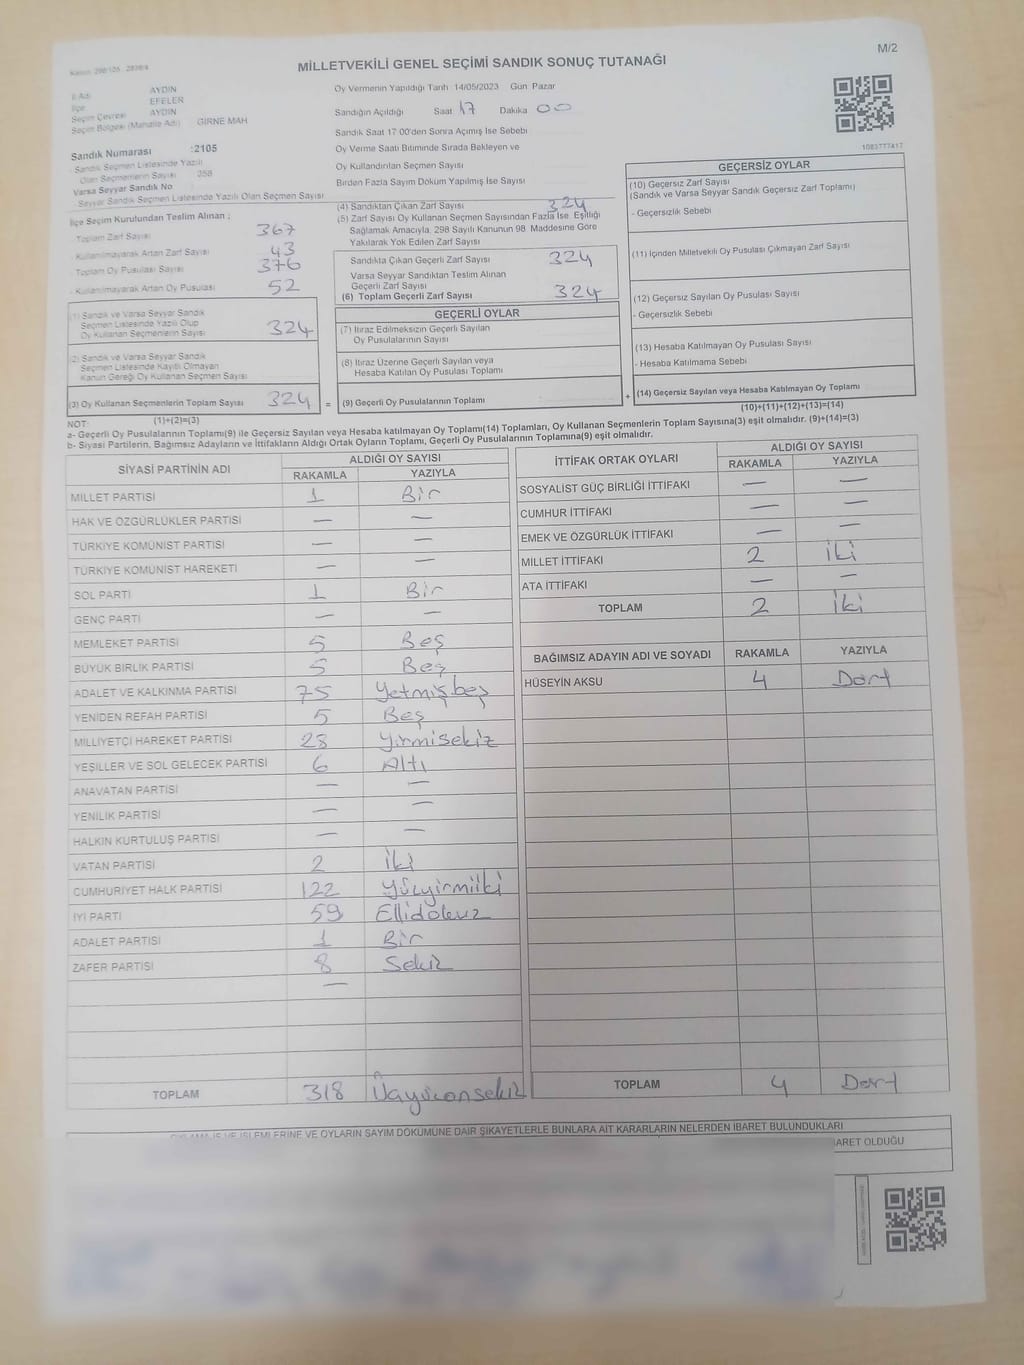 M/2
MİLLETVEKİLİ GENEL SEÇİMİ SANDIK SONUÇ TUTANAĞI
İl Adı AYDIN
İlçe EFELER
Seçim Çevresi AYDIN
Seçim Bölgesi (Mahalle Adı) GİRNE MAH
Sandık Numarası :2105
Sandık Seçmen Listesinde Yazılı
Olan Seçmenlerin Sayısı 358
Varsa Seyyar Sandık No
Seyyar Sandık Seçmen Listesinde Yazılı Olan Seçmen Sayısı
Oy Vermenin Yapıldığı Tarih 14/05/2023 Gün: Pazar
Sandığın Açıldığı Saat 17 Dakika 00
Sandık Saat 17 00'den Sonra Açılmış İse Sebebi
Oy Verme Saati Bitiminde Sırada Bekleyen ve
Oy Kullandırılan Seçmen Sayısı
Birden Fazla Sayım Döküm Yapılmış İse Sayısı
1083777417
İlçe Seçim Kurulundan Teslim Alınan ;
Toplam Zarf Sayısı 367
- Kullanılmayarak Artan Zarf Sayısı 43
- Toplam Oy Pusulası Sayısı 376
- Kullanılmayarak Artan Oy Pusulası 52
(1) Sandık ve Varsa Seyyar Sandık
Seçmen Listesinde Yazılı Olup
Oy Kullanan Seçmenlerin Sayısı 324
(2) Sandık ve Varsa Seyyar Sandık
Seçmen Listesinde Kayıtlı Olmayan
Kanun Gereği Oy Kullanan Seçmen Sayısı
(3) Oy Kullanan Seçmenlerin Toplam Sayısı 324 =
(1)+(2)=(3)
(4) Sandıktan Çıkan Zarf Sayısı 324
(5) Zarf Sayısı Oy Kullanan Seçmen Sayısından Fazla İse, Eşitliği
Sağlamak Amacıyla, 298 Sayılı Kanunun 98. Maddesine Göre
Yakılarak Yok Edilen Zarf Sayısı
Sandıkta Çıkan Geçerli Zarf Sayısı 324
Varsa Seyyar Sandıktan Teslim Alınan
Geçerli Zarf Sayısı
(6) Toplam Geçerli Zarf Sayısı 324
GEÇERLİ OYLAR
(7) İtiraz Edilmeksizin Geçerli Sayılan
Oy Pusulalarının Sayısı
(8) İtiraz Üzerine Geçerli Sayılan veya
Hesaba Katılan Oy Pusulası Toplamı
(9) Geçerli Oy Pusulalarının Toplamı +
GEÇERSİZ OYLAR
(10) Geçersiz Zarf Sayısı
(Sandık ve Varsa Seyyar Sandık Geçersiz Zarf Toplamı)
- Geçersizlik Sebebi
(11) İçinden Milletvekili Oy Pusulası Çıkmayan Zarf Sayısı
(12) Geçersiz Sayılan Oy Pusulası Sayısı
- Geçersizlik Sebebi
(13) Hesaba Katılmayan Oy Pusulası Sayısı
- Hesaba Katılmama Sebebi
(14) Geçersiz Sayılan veya Hesaba Katılmayan Oy Toplamı
(10)+(11)+(12)+(13)=(14)
NOT:
a- Geçerli Oy Pusulalarının Toplamı(9) ile Geçersiz Sayılan veya Hesaba katılmayan Oy Toplamı(14) Toplamları, Oy Kullanan Seçmenlerin Toplam Sayısına(3) eşit olmalıdır. (9)+(14)=(3)
b- Siyasi Partilerin, Bağımsız Adayların ve İttifakların Aldığı Ortak Oyların Toplamı, Geçerli Oy Pusulalarının Toplamına(9) eşit olmalıdır.
SİYASİ PARTİNİN ADI ALDIĞI OY SAYISI
RAKAMLA YAZIYLA
MİLLET PARTİSİ 1 Bir
HAK VE ÖZGÜRLÜKLER PARTİSİ — —
TÜRKİYE KOMÜNİST PARTİSİ — —
TÜRKİYE KOMÜNİST HAREKETİ — —
SOL PARTİ 1 Bir
GENÇ PARTİ — —
MEMLEKET PARTİSİ 5 Beş
BÜYÜK BİRLİK PARTİSİ 5 Beş
ADALET VE KALKINMA PARTİSİ 75 Yetmişbeş
YENİDEN REFAH PARTİSİ 5 Beş
MİLLİYETÇİ HAREKET PARTİSİ 28 Yirmisekiz
YEŞİLLER VE SOL GELECEK PARTİSİ 6 Altı
ANAVATAN PARTİSİ — —
YENİLİK PARTİSİ — —
HALKIN KURTULUŞ PARTİSİ — —
VATAN PARTİSİ 2 İki
CUMHURİYET HALK PARTİSİ 122 Yüzyirmiiki
İYİ PARTİ 59 Ellidokuz
ADALET PARTİSİ 1 Bir
ZAFER PARTİSİ 8 Sekiz
—
TOPLAM 318 Üçyüzonsekiz
İTTİFAK ORTAK OYLARI ALDIĞI OY SAYISI
RAKAMLA YAZIYLA
SOSYALİST GÜÇ BİRLİĞİ İTTİFAKI — —
CUMHUR İTTİFAKI — —
EMEK VE ÖZGÜRLÜK İTTİFAKI — —
MİLLET İTTİFAKI 2 İki
ATA İTTİFAKI — —
TOPLAM 2 İki
BAĞIMSIZ ADAYIN ADI VE SOYADI RAKAMLA YAZIYLA
HÜSEYİN AKSU 4 Dört
TOPLAM 4 Dört
OYLAMA İŞ VE İŞLEMLERİNE VE OYLARIN SAYIM DÖKÜMÜNE DAİR ŞİKAYETLERLE BUNLARA AİT KARARLARIN NELERDEN İBARET BULUNDUKLARI
İBARET OLDUĞU